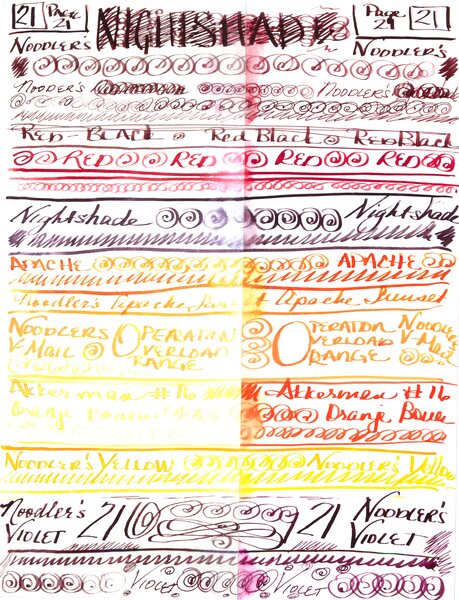 21 PAGE 21 NIGHTSHADE PAGE 21 21
NOODLER'S NOODLER'S
NOODLER'S NOODLER'S
RED-BLACK Red Black RED BLACK
RED RED RED RED
Nightshade Nightshade
APACHE APACHE
Noodler's Apache Apache Sunset
NOODLERS V-MAIL OPERATION OVERLOAD ORANGE OPERATION OVERLOAD ORANGE NOODLER V-MAIL
Akkerman #16 Akkerman #16
Oranje Oranje Boven
NOODLER'S YELLOW NOODLER'S Yellow
Noodler's VIOLET 21 21 NOODLER'S VIOLET
VIOLET VIOLET